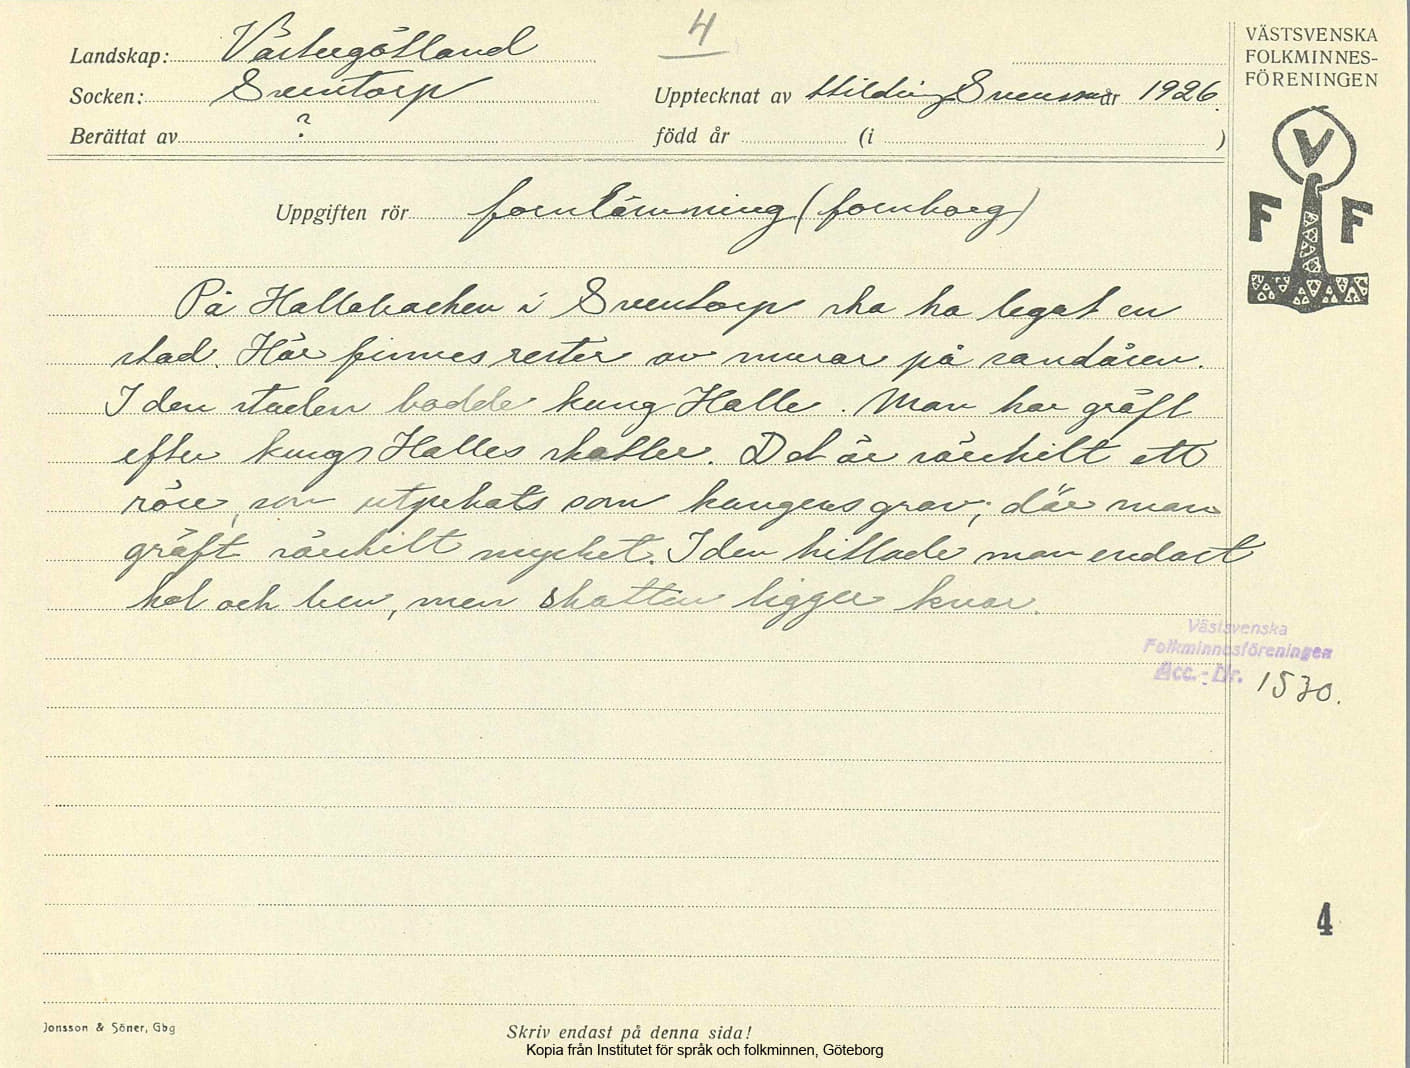 4
Landskap: Västergötland
Socken: Sventorp
Upptecknat av Hilding Svensson år 1926.
Berättat av ?
född år (i )
Uppgiften rör fornlämning (fornborg)
På Hallabacken i Sventorp ska ha legat en
stad. Här finnes rester av murar på sandåsen.
I den staden bodde kung Halle. Man har gräft
efter kung Halles skatter. Det är särskilt ett
röse, som utpekats som kungens grav; där man
gräft särskilt mycket. I den hittade man endast
kol och ben, men skatten ligger kvar.
VÄSTSVENSKA
FOLKMINNES-
FÖRENINGEN
V
F F
Västsvenska
Folkminnesföreningen
Acc.-Nr. 1530.
4
Jonsson & Söner, Gbg
Skriv endast på denna sida!
Kopia från Institutet för språk och folkminnen, Göteborg